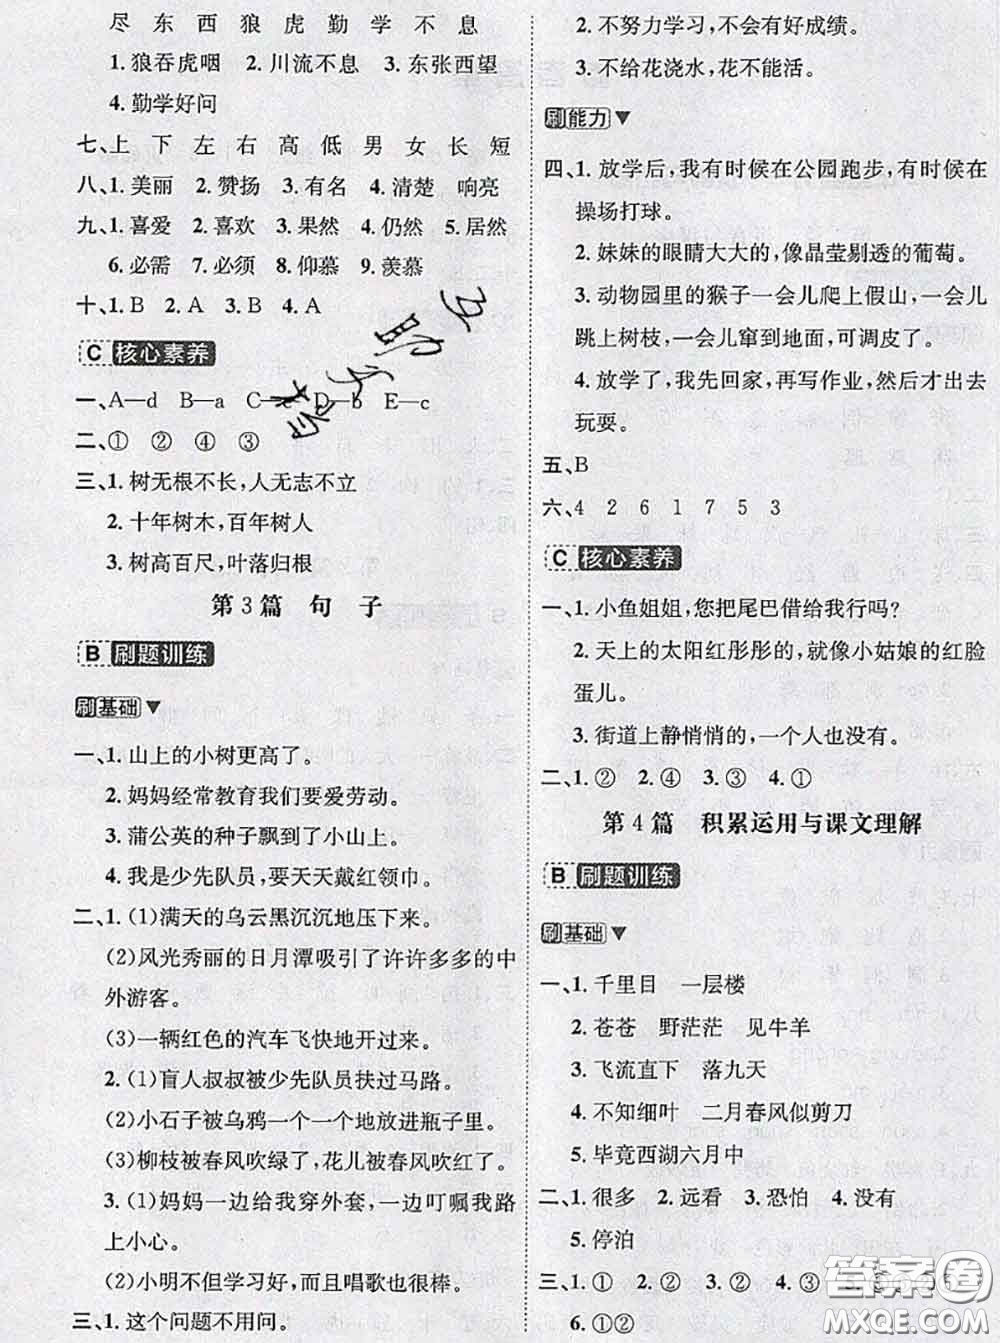 尽 东 西 狼 虎 勤 学 不 息
1. 狼吞虎咽 2. 川流不息 3. 东张西望
4. 勤学好问
七、上 下 左 右 高 低 男 女 长 短
八、1. 美丽 2. 赞扬 3. 有名 4. 清楚 响亮
九、1. 喜爱 2. 喜欢 3. 果然 4. 仍然 5. 居然
6. 必需 7. 必须 8. 仰慕 9. 羡慕
十、1. B 2. A 3. B 4. A
C 核心素养
一、A—d B—a C—e D—b E—c
二、① ② ④ ③
三、1. 树无根不长,人无志不立
2. 十年树木,百年树人
3. 树高百尺,叶落归根
第 3 篇 句 子
B 刷题训练
刷基础
一、1. 山上的小树更高了。
2. 妈妈经常教育我们要爱劳动。
3. 蒲公英的种子飘到了小山上。
4. 我是少先队员,要天天戴红领巾。
二、1. (1)满天的乌云黑沉沉地压下来。
(2)风光秀丽的日月潭吸引了许许多多的中
外游客。
(3)一辆红色的汽车飞快地开过来。
2. (1)盲人叔叔被少先队员扶过马路。
(2)小石子被乌鸦一个一个地放进瓶子里。
(3)柳枝被春风吹绿了,花儿被春风吹红了。
3. (1)妈妈一边给我穿外套,一边叮嘱我路
上小心。
(2)小明不但学习好,而且唱歌也很棒。
三、1. 这个问题不用问。
2. 不努力学习,不会有好成绩。
3. 不给花浇水,花不能活。
刷能力
四、1. 放学后,我有时候在公园跑步,有时候在
操场打球。
2. 妹妹的眼睛大大的,像晶莹剔透的葡萄。
3. 动物园里的猴子一会儿爬上假山,一会儿
跳上树枝,一会儿窜到地面,可调皮了。
4. 放学了,我先回家,再写作业,然后才出去
玩耍。
五、B
六、4 2 6 1 7 5 3
C 核心素养
一、1. 小鱼姐姐,您把尾巴借给我行吗?
2. 天上的太阳红彤彤的,就像小姑娘的红脸
蛋儿。
3. 街道上静悄悄的,一个人也没有。
二、1. ② 2. ④ 3. ③ 4. ①
第 4 篇 积累运用与课文理解
B 刷题训练
刷基础
一、1. 千里目 一层楼
2. 苍苍 野茫茫 见牛羊
3. 飞流直下 落九天
4. 不知细叶 二月春风似剪刀
5. 毕竟西湖六月中
二、1. 很多 2. 远看 3. 恐怕 4. 没有
5. 停泊
三、1. ① 2. ② 3. ①
6. ①②
答案圈
MXQE.COM